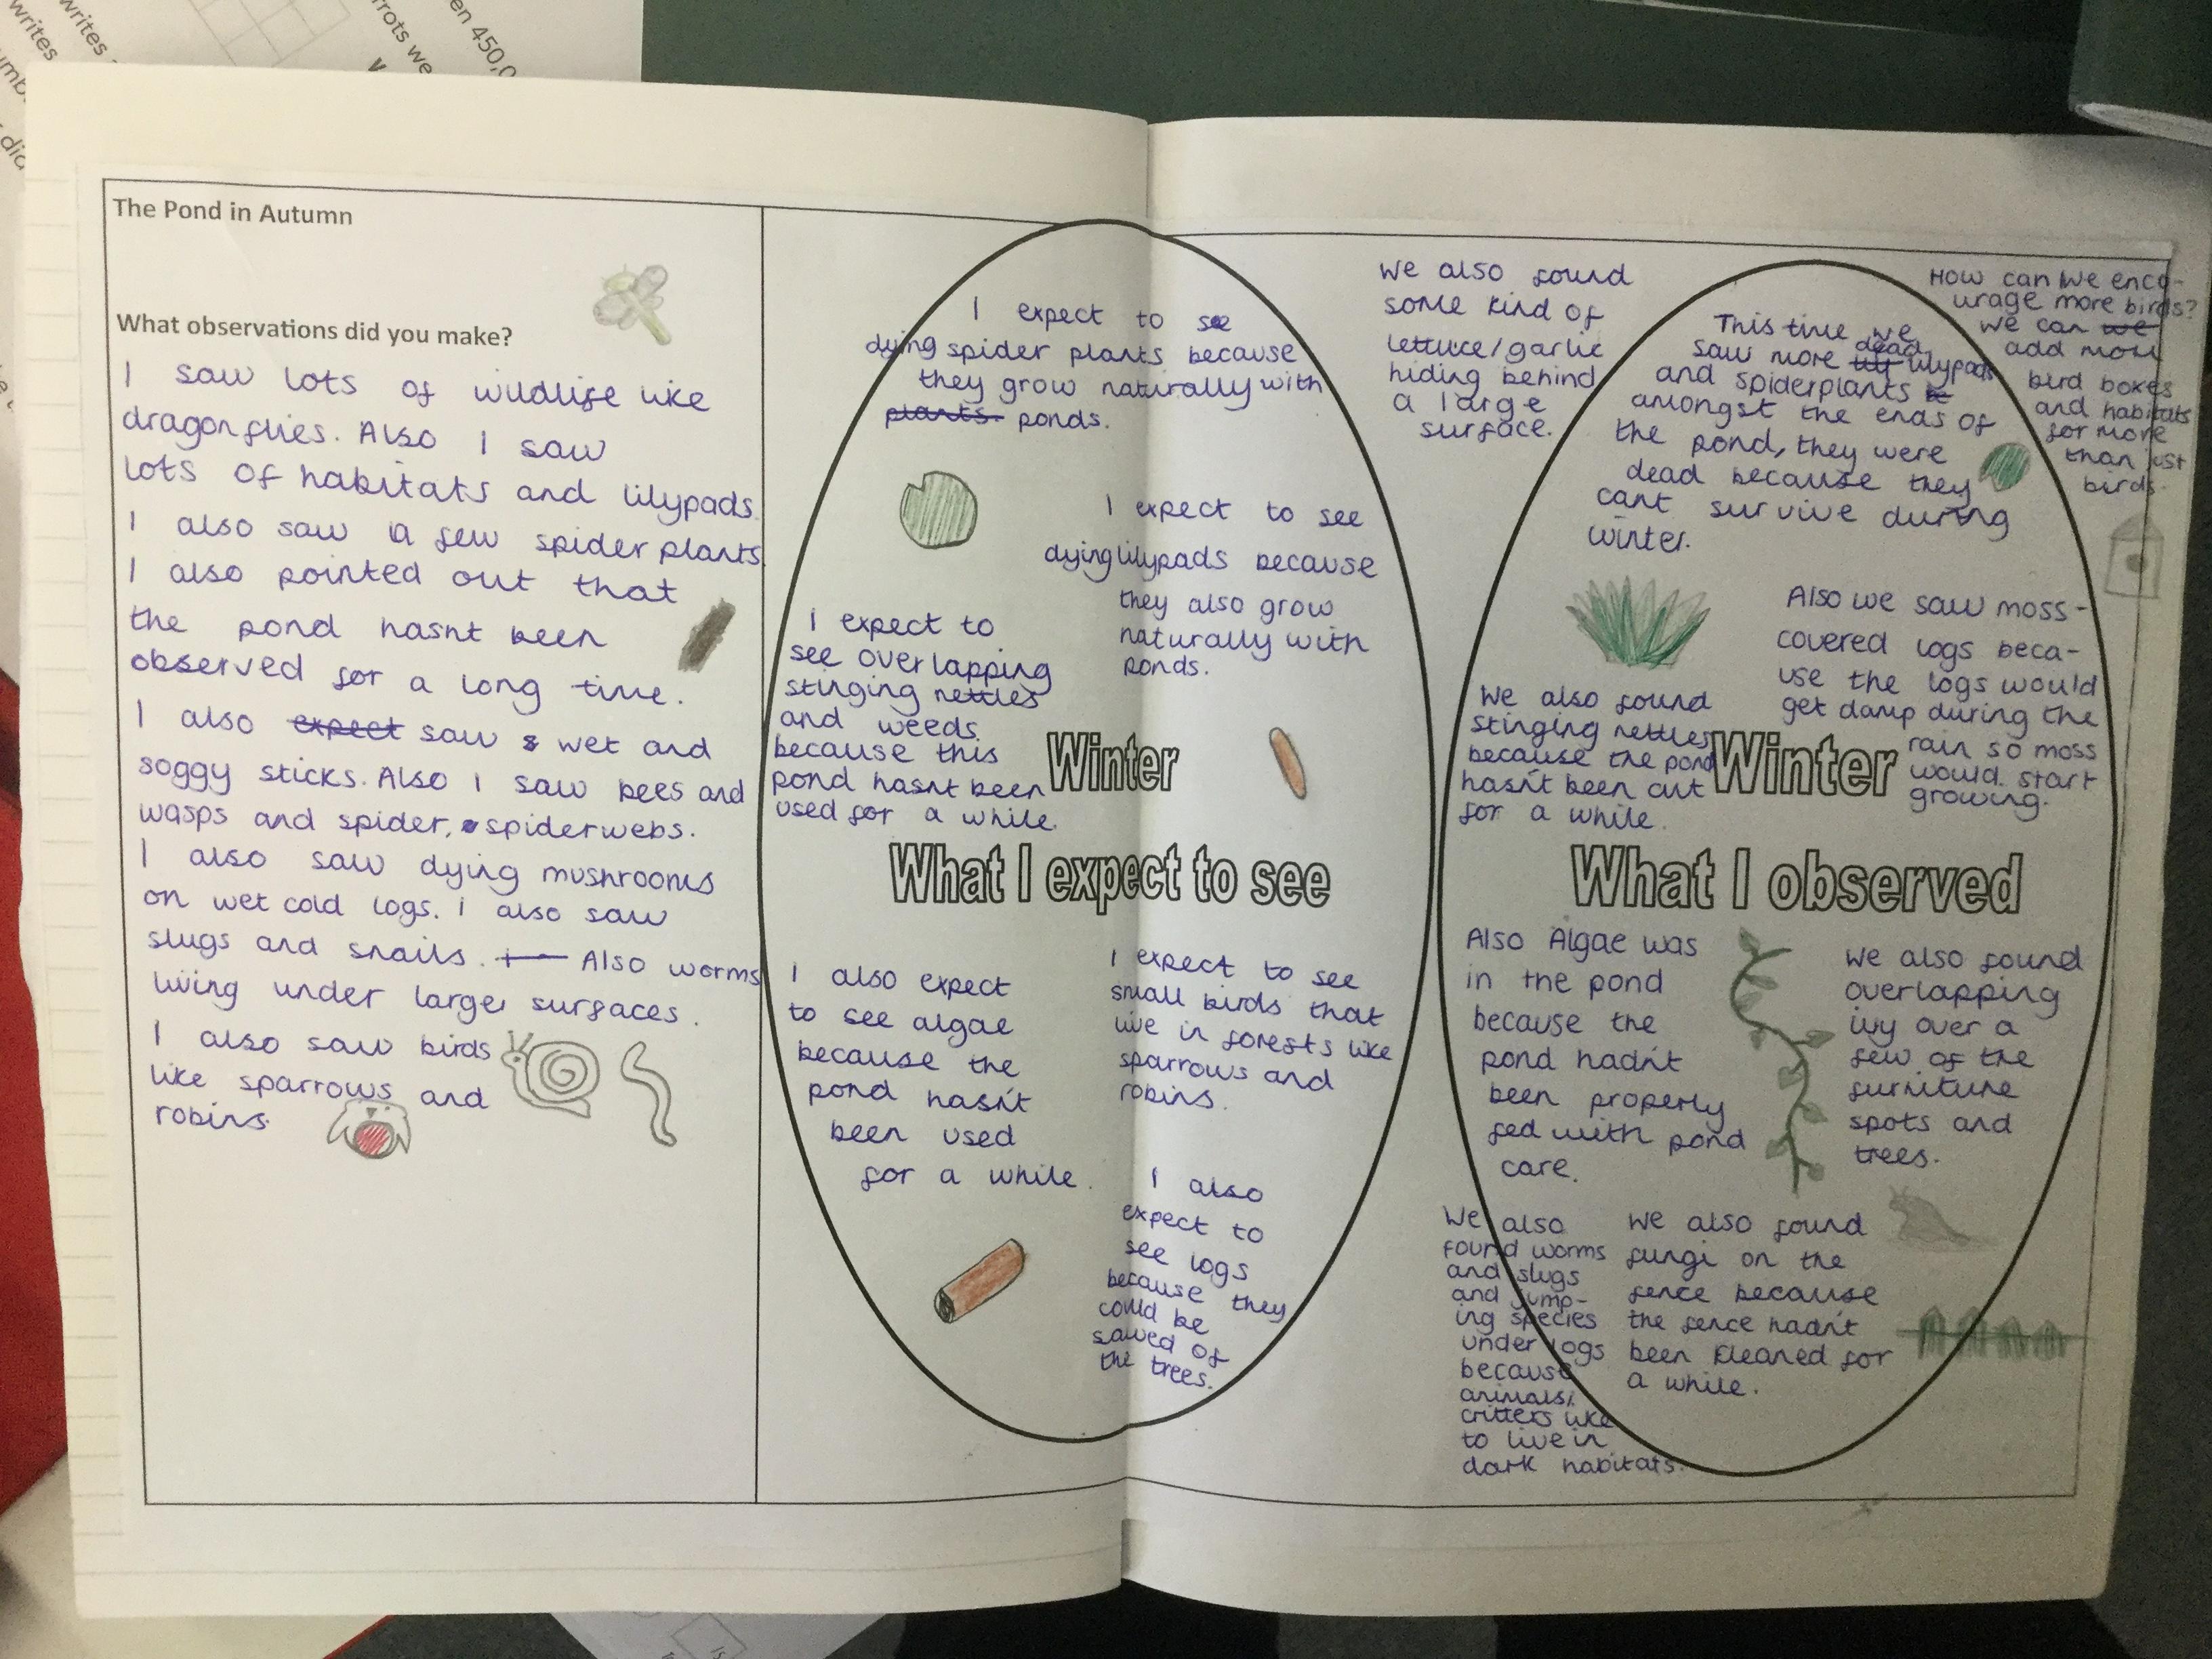 writes
writes
umb
did
rots we
en 450,0
The Pond in Autumn
What observations did you make?
I saw lots of wildlife like
dragonflies. Also I saw
lots of habitats and lilypads.
I also saw a few spider plants
I also pointed out that
the pond hasnt been
observed for a long time.
I also expect saw s wet and
soggy sticks. Also I saw bees and
wasps and spider, spiderwebs.
I also saw dying mushrooms
on wet cold logs. i also saw
slugs and snails. Also worms
living under large surfaces.
I also saw birds
like sparrows and
robins.
I expect to see
dying spider plants because
they grow naturally with
plants. ponds.
I expect to see
dying lilypads because
they also grow
naturally with
ponds.
I expect to
see overlapping
stinging nettles
and weeds.
because this
pond hasnt been
used for a while.
Winter
What I expect to see
I also expect
to see algae
because the
pond hasn't
been used
for a while.
I expect to see
small birds that
live in forests like
sparrows and
robins.
I also
expect to
see logs
because they
could be
sawed of
the trees.
We also found
some kind of
lettuce/garlic
hiding behind
a large
surface.
This time we
dead
saw more lily lilypads
and spiderplants
amongst the ends of
the pond, they were
dead because they
cant survive during
winter.
How can we enco-
urage more birds?
we can we
add more
bird boxes
and habitats
for more
than just
birds.
Also we saw moss-
covered logs beca-
use the logs would
get damp during the
rain so moss
would. start
growing.
We also found
stinging nettles
because the pond
hasn't been cut
for a while.
Winter
What I observed
Also Algae was
in the pond
because the
pond hadn't
been properly
fed with pond
care.
We also found
overlapping
ivy over a
few of the
furniture
spots and
trees.
We also
found worms
and slugs
and jump-
ing species
under logs
because
animals/
critters like
to live in
dark habitats.
We also found
fungi on the
fence because
the fence hadn't
been kleaned for
a while.